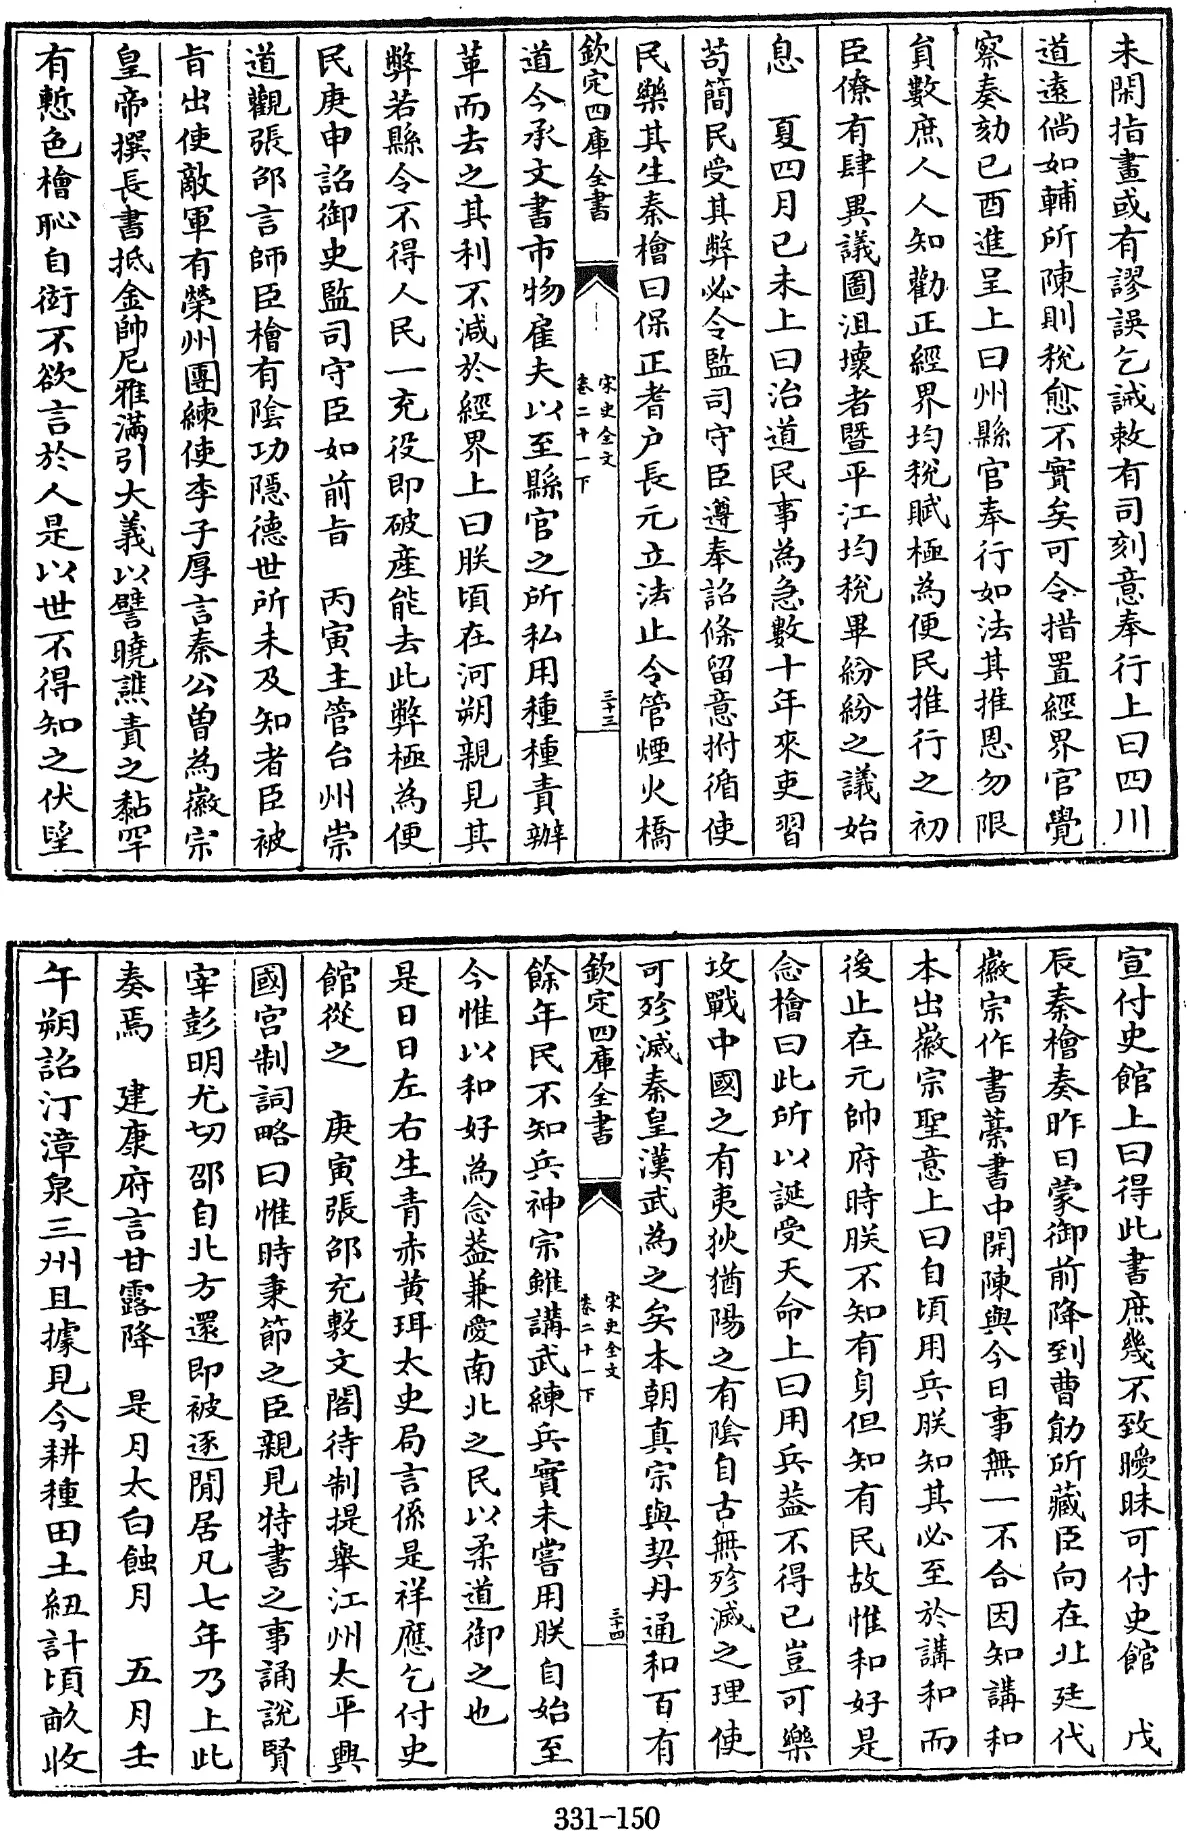 未閑指畫或有謬誤乞誡敕有司刻意奉行上曰四川
道遠倘如輔所陳則稅愈不實矣可令措置經界官覺
察奏劾己酉進呈上曰州縣官奉行如法其推恩勿限
員數庶人人知勸正經界均稅賦極為便民推行之初
臣僚有肆異議圖沮壞者暨平江均稅畢紛紛之議始
息　夏四月己未上曰治道民事為急數十年來吏習
苟簡民受其弊必令監司守臣遵奉詔條留意拊循使
民樂其生秦檜曰保正者户長元立法止令管煙火橋
欽定四庫全書
宋史全文
卷二十一下
三十三
道今承文書市物雇夫以至縣官之所私用種種責辦
革而去之其利不減於經界上曰朕頃在河朔親見其
弊若縣令不得人民一充役即破產能去此弊極為便
民庚申詔御史監司守臣如前旨　丙寅主管台州崇
道觀張邵言師臣檜有陰功隠德世所未及知者臣被
旨出使敵軍有榮州團練使李子厚言秦公曾為徽宗
皇帝撰長書抵金帥尼雅滿引大義以譬曉譙責之黏罕
有慙色檜恥自衒不欲言於人是以世不得知之伏望
宣付史館上曰得此書庶幾不致曖昧可付史館　戊
辰秦檜奏昨日蒙御前降到曹勛所藏臣向在北廷代
徽宗作書藁書中開陳與今日事無一不合因知講和
本出徽宗聖意上曰自頃用兵朕知其必至於講和而
後止在元帥府時朕不知有身但知有民故惟和好是
念檜曰此所以誕受天命上曰用兵葢不得已豈可樂
攻戰中國之有夷狄猶陽之有陰自古無殄滅之理使
可殄滅秦皇漢武為之矣本朝真宗與契丹通和百有
欽定四庫全書
宋史全文
卷二十一下
三十四
餘年民不知兵神宗雖講武練兵實未嘗用朕自始至
今惟以和好為念葢兼愛南北之民以柔道御之也
是日日左右生青赤黃珥太史局言係是祥應乞付史
館從之　庚寅張邵充敷文閣待制提舉江州太平興
國宮制詞略曰惟時秉節之臣親見特書之事誦說賢
宰彭明尤切邵自北方還即被逐閒居凡七年乃上此
奏焉　建康府言甘露降　是月太白蝕月　五月壬
午朔詔汀漳泉三州且據見今耕種田土紐計頃畝收
331-150